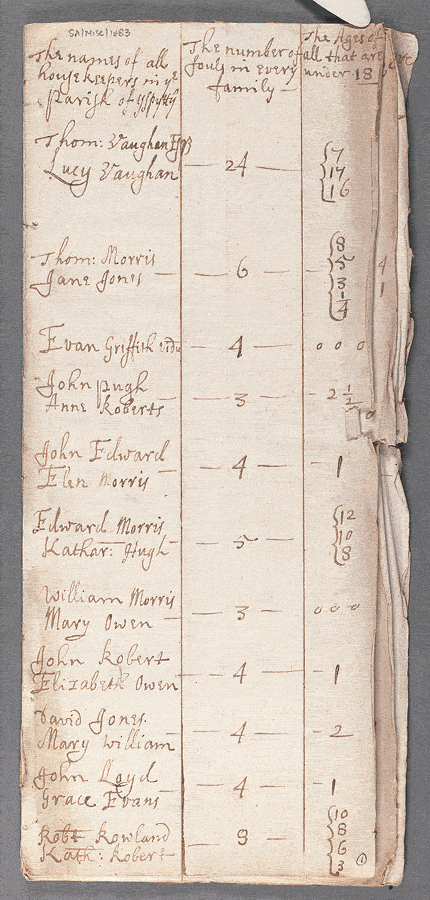 SA/Misc/1483
The names of all
housekeepers in ye
Parish of yspytty
The number of
souls in every
family —
The Ages of
all that are
under 18
Thom: Vaughan Esqr
Lucy Vaughan
— 24 —
7
17
16
Thom: Morris
Jane Jones —
— 6 —
8
5
3
1/4
4
1
Evan Griffith vidu
— 4 —
o o o
John pugh
Anne Roberts
— 3 —
- 2 1/2
John Edward
Elin Morris
— 4 —
- 1
Edward Morris
Kathar: Hugh
— 5 —
12
10
8
William Morris
Mary Owen —
— 3 —
o o o
John Robert
Elizabeth Owen
— 4 —
- 1
David Jones.
Mary William
— 4 —
- 2
John Lloyd
Grace Evans
— 4 —
- 1
Robt Rowland
Kath: Robert
— 8 —
10
8
6
3
1